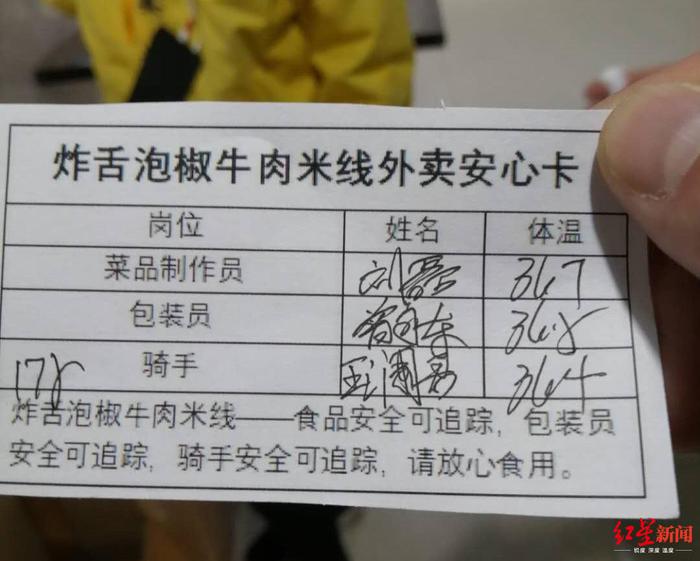 炸舌泡椒牛肉米线外卖安心卡
岗位 姓名 体温
菜品制作员 刘 36.7
包装员 36.8
骑手 36.4
178
炸舌泡椒牛肉米线——食品安全可追踪，包装员
安全可追踪，骑手安全可追踪，请放心食用。
红星新闻
锐度 深度 温度